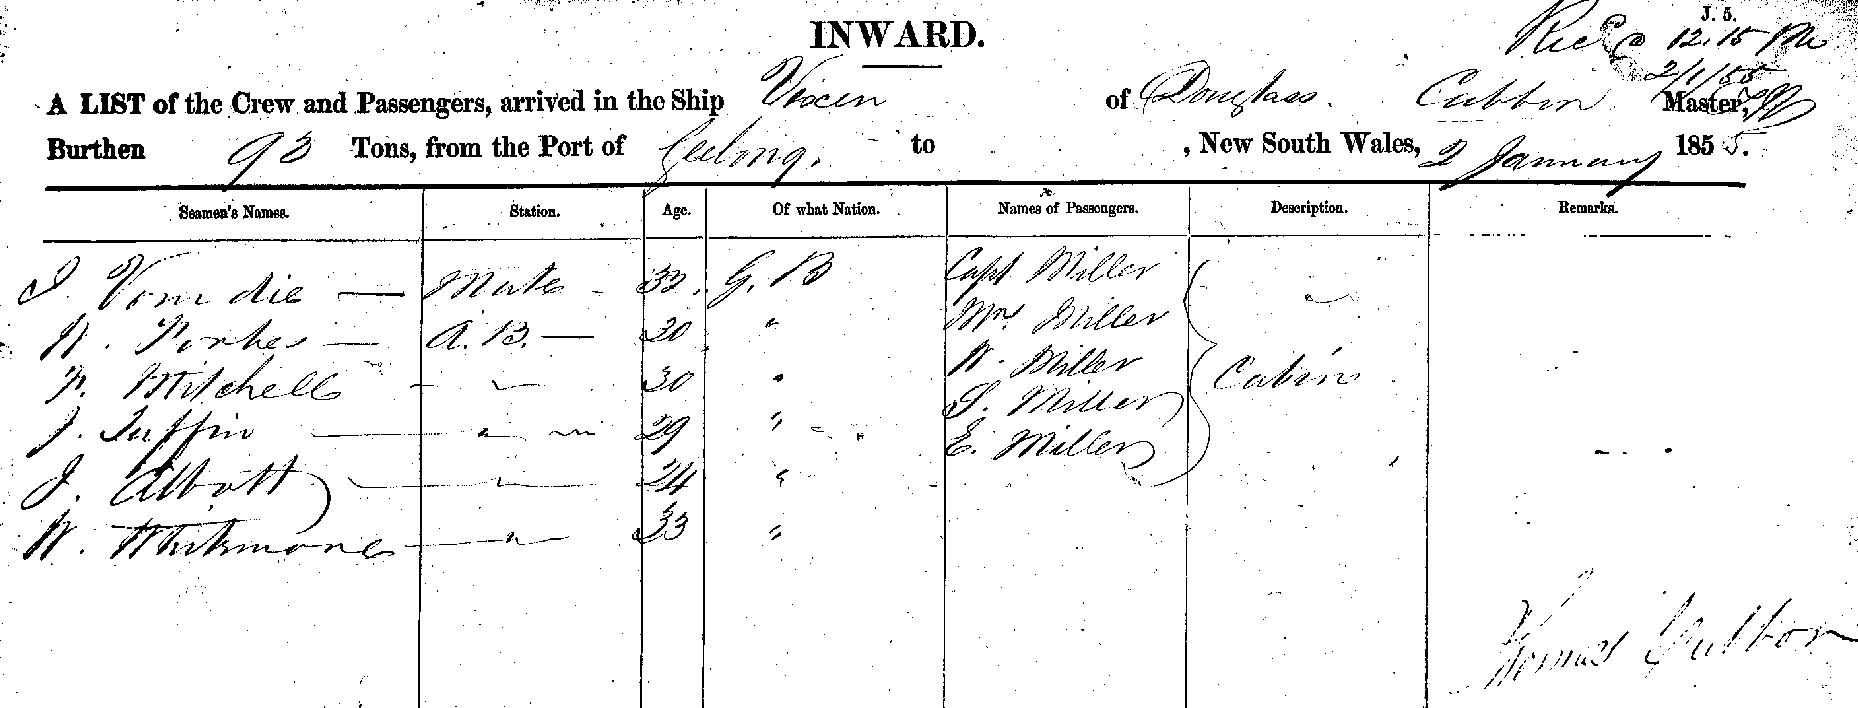 J. 5.
INWARD.
Recd 12.15 PM
2/1/55
A LIST of the Crew and Passengers, arrived in the Ship Vixen of Douglass. Cubbin Master,
Burthen 93 Tons, from the Port of Geelong. to , New South Wales, 2 January 1855.
Seamen's Names. Station. Age. Of what Nation. Names of Passengers. Description. Remarks.
J. Vom die — Mate - 33. G. B Capt Miller
W. Forbes — A. B. — 30 " Mrs Miller
F. Mitchell - " - 30 " W. Miller Cabin
J. Tuffin — " — 29 " S. Miller
J. Abbott — " — 24 " E. Miller
W. Whitmore — " — 33 "
Thomas Cubbon